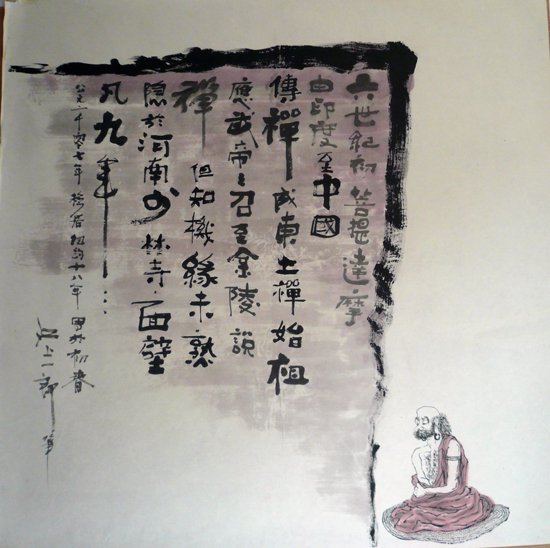 六世紀初菩提達摩
由印度至中國
傳禪成東土禪始祖
應武帝之召至金陵說
禪但知機緣未熟
隱於河南少林寺面壁
凡九年……
公元二千零七年移居紐約十八年初春